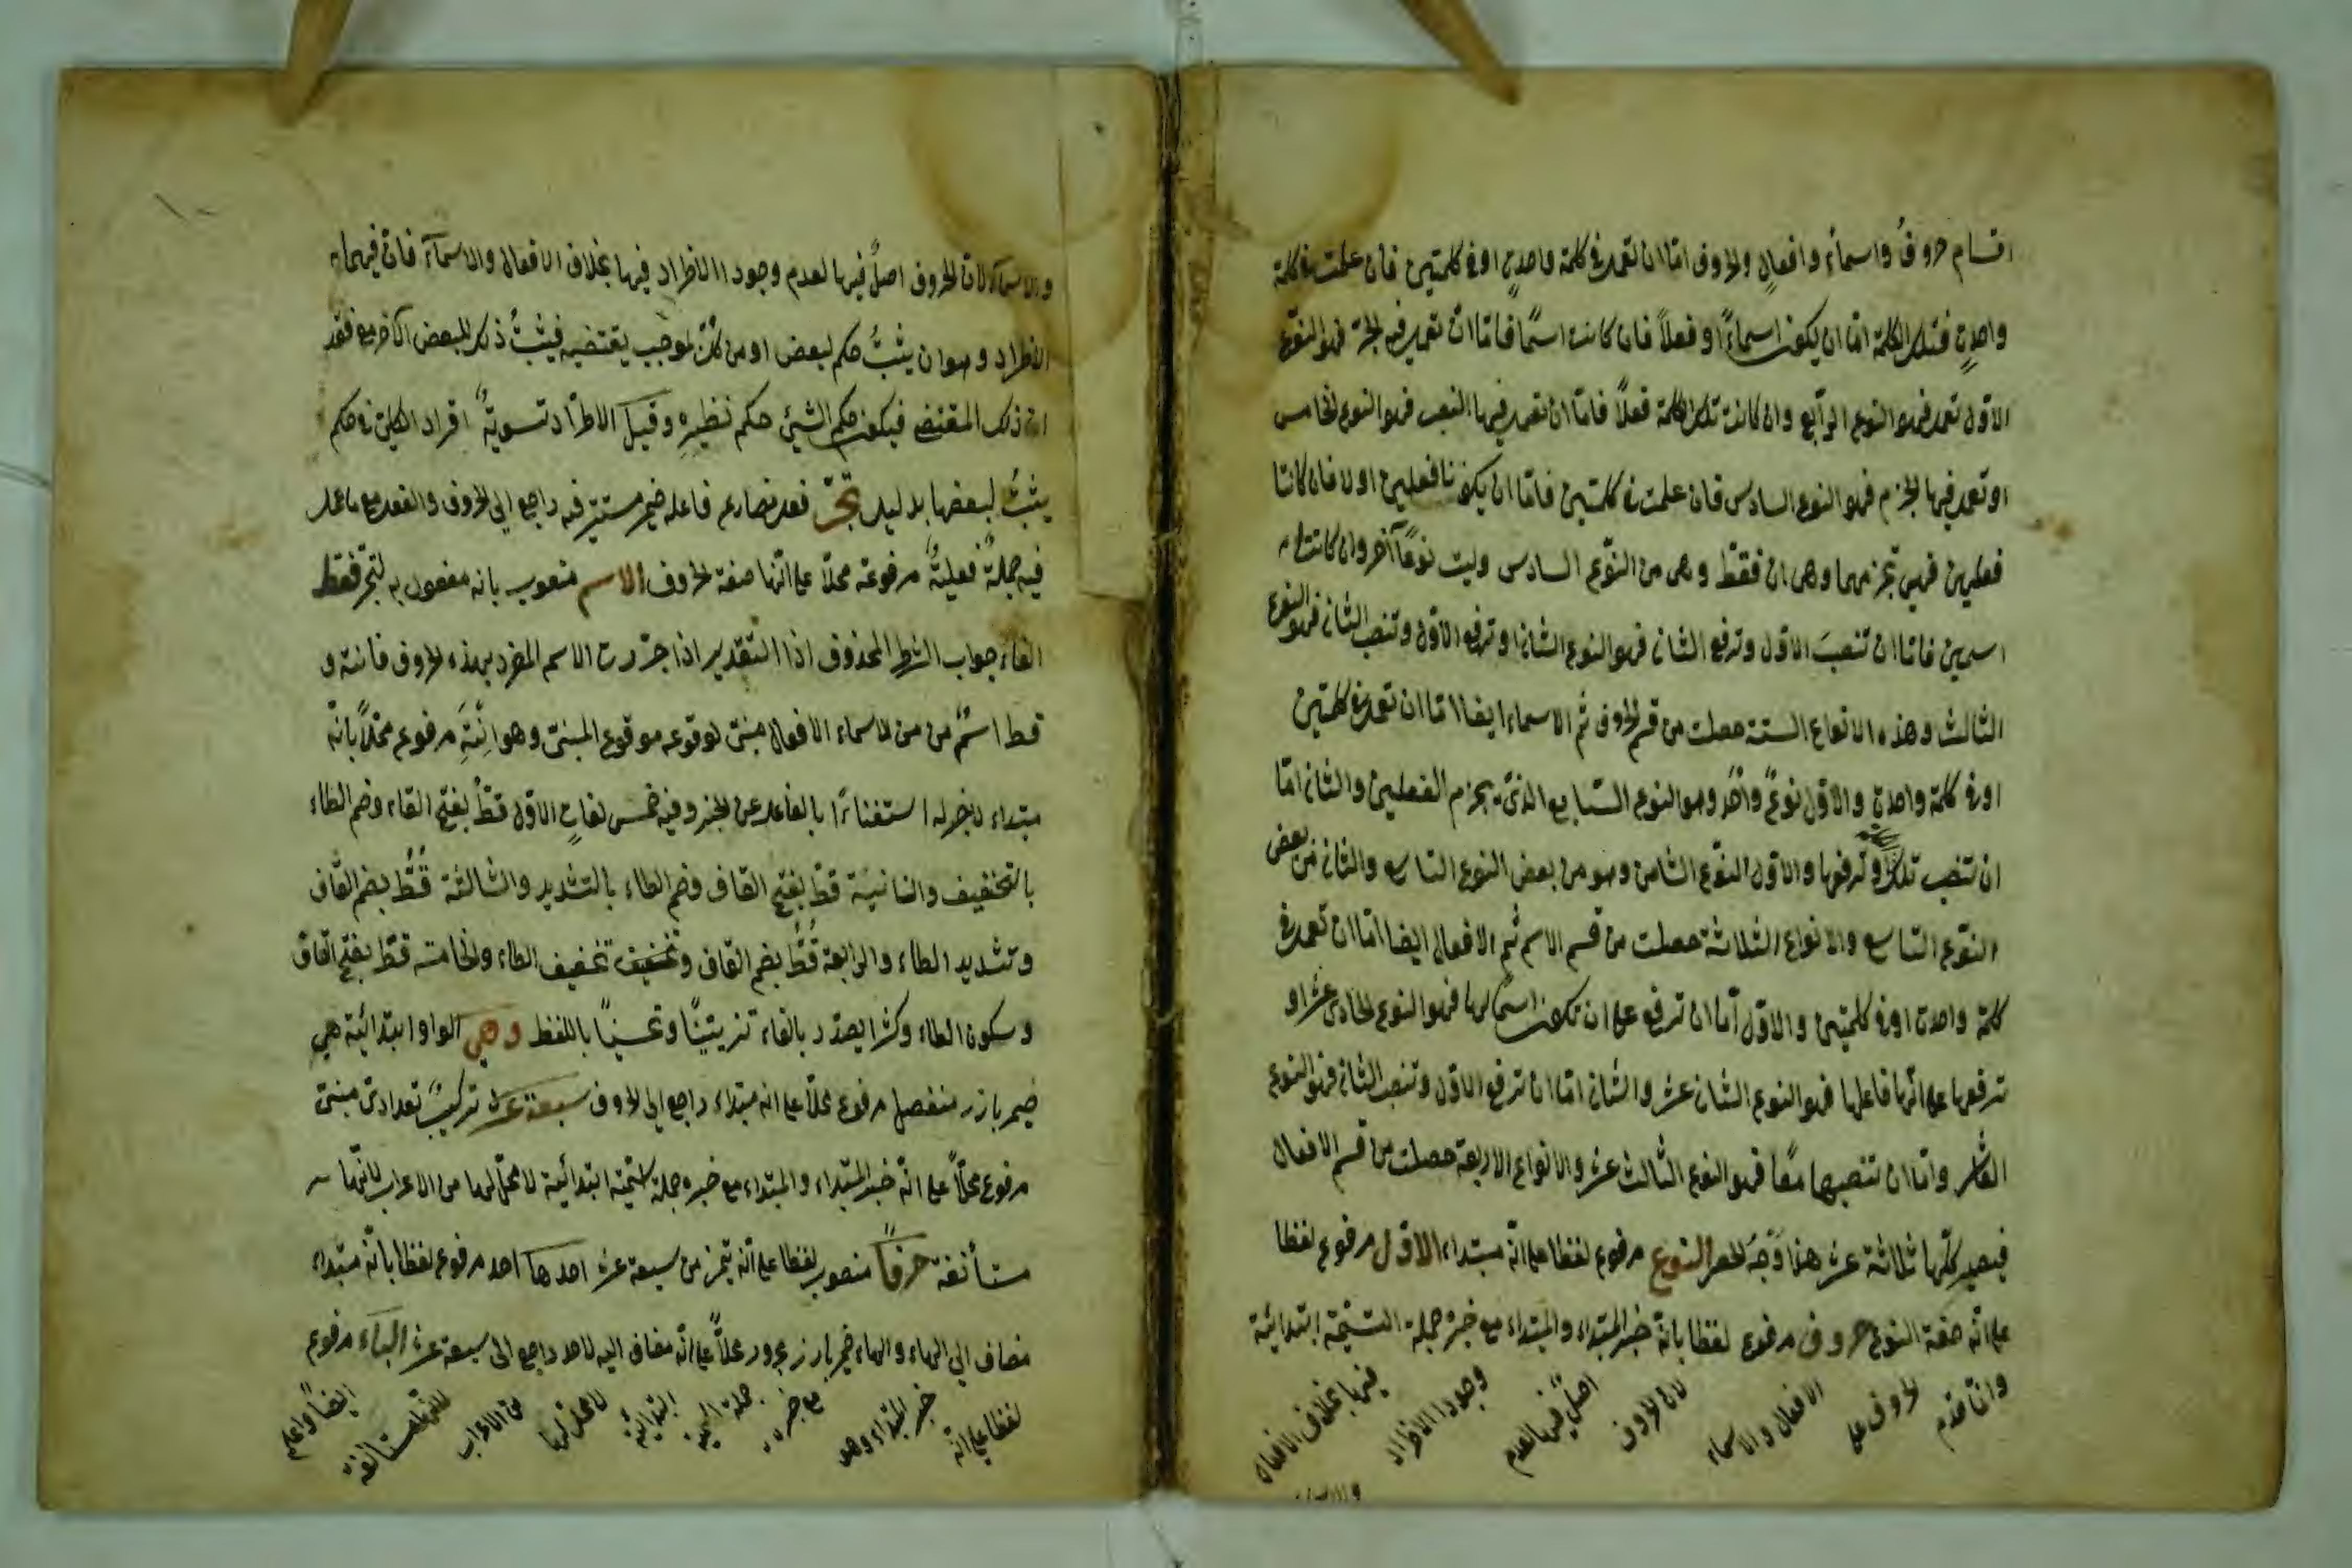 اقسام حروفٌ واسماءٌ وافعالٍ والحروف امّا ان تعمل فى كلمة واحدةٍ او فى كلمتين فان عملت فى كلمة
واحدةٍ فتلك الكلمة امّا ان يكون اسماءً او فعلاً فان كانت اسمًا فامّا ان تعمل فيه الجرّ فهو النوع
الاوّل تعمل فهو النوع الرّابع وان كانت تلك الكلمة فعلاً فامّا ان تعمل فيها النصب فهو النوع الخامس
او تعمل فيها الجزم فهو النوع السادس فان عملت فى كلمتين فامّا ان يكونا فعلين اولا فان كانتا
فعلين فهى تجزمهما وهى ان فقطْ وهى من النّوع السادس وليت نوعًا آخر وان كانتا
اسمين فامّا ان تنصبَ الاوّل وترفع الثانى فهو النوع الثانى او ترفع الاوّل وتنصب الثانى فهو النوع
الثالث وهذه الانواع الستة حصلت من قسم الحروف ثم الاسماء ايضا امّا ان تعمل فى كلمتين
او فى كلمة واحدةٍ والاوّل نوعٌ واحدٌ وهو النوع السّابع الذى يجزم الفعلين والثانى امّا
ان تنصب تلك وترفعها والاوّل النّوع الثامن وهو من بعض النوع التاسع والثانى من بعض
النّوع التاسع والانواع الثلاثة حصلت من قسم الاسم ثم الافعال ايضا امّا ان تعمل فى
كلمة واحدة او فى كلمتين والاوّل امّا ان ترفع على ان تكون اسمًا لها فهو النوع الحادى عشر او
ترفعها على انّها فاعلها فهو النوع الثانى عشر والثانى امّا ان ترفع الاوّل وتنصب الثانى فهو النوع
العاشر وامّا ان تنصبهما معًا فهو النوع الثالث عشر والانواع الاربعة حصلت من قسم الافعال
فيصير كلّها ثلاثة عشر هذا وَجْهُ الحصر النوع مرفوع لفظا على انّه مبتداء الاوّل مرفوع لفظا
على انّه صفة النوع حروف مرفوع لفظا بانّه خبر المبتداء والمبتداء مع خبره جملة اسميّة ابتدائيّة
وانّما قدّم الحروف على الافعال والاسماء لانّ الحروف اصلٌ فيها لعدم وجود الاطراد فيها بخلاف الافعال
والاسماء
والاسمآء لان الحروف اصلٌ فيها لعدم وجود الاطراد فيها بخلاف الافعال والاسمآء فان فيهما
الاطراد وهو ان يثبتُ حكم لبعض او من كلّ لموجب يقتضيه فيثبتُ ذلك للبعض الآخر مع فقد
ان ذلك المقتضى فيكون حكم الشيئ حكم نظيرهِ وقيل الاطرّاد تسويةٌ افراد الكلىّ فى حكم
يثبتُ لبعضها بدليل تجرّ فعل مضارع فاعله ضمير مستتر فيه راجع الى الحروف والفعل مع ما عمل
فيه جملةٌ فعليّةٌ مرفوعة محلاّ على انّها صفة الحروف الاسم منصوب بانه مفعول به لتجرّ فقط
الفاء جواب الشرط المحذوف اذا التّقدير اذا جرّرت الاسم المفرد بهذه الحروف فانته و
قط اسْمٌ من من الاسماء الافعال مبنىّ لوقوعه موقوع المبنىّ وهو انْتَهِ مرفوع محلاًّ بانّه
مبتداء لا خبر له استغناءً بالفاعل عن الخبر وفيه خمس لغاتٍ الاوّل قطُ بفتح القاء وضم الطاء
بالتخفيف والثانية قطّ بفتح القاف وضم الطاء بالتشديد والثالثة قُطُّ بضم القاف
وتشديد الطاء والرابعة قُطُ بضم القاف وتخفيف تخفيف الطاء والخامسة قطْ بفتح القاف
وسكون الطاء وكثرا يصدّر بالفاء تزيينًا وتحسينًا باللفظ وهى الواو ابتدائيّة هى
ضمير بارز منفصل مرفوع محلاّ على انّه مبتداء راجع الى الحروف سبعة عشر تركيبٌ تعدادىّ مبنىّ
مرفوع محلاًّ على انّه خبر المبتداء والمبتداء مع خبره جملة اسميّة ابتدائيّة لا محلّ لها من الاعراب لانّها
مستأنفة حرفًا منصوب لفظا على انّه تميز من سبعة عشر احدها احد مرفوع لفظا بانّه مبتداء
مضاف الى الهاء والهاء ضمير بارز مجرور محلاًّ على انّه مضاف اليه لاحد راجع الى سبعة عشر البآء مرفوع
لفظا على انّه خبر المبتداء وهو مع خبره جملة اسمية ابتدائيّة لا محلّ لها من الاعراب لانّها مستانفة ايضًا واعلم